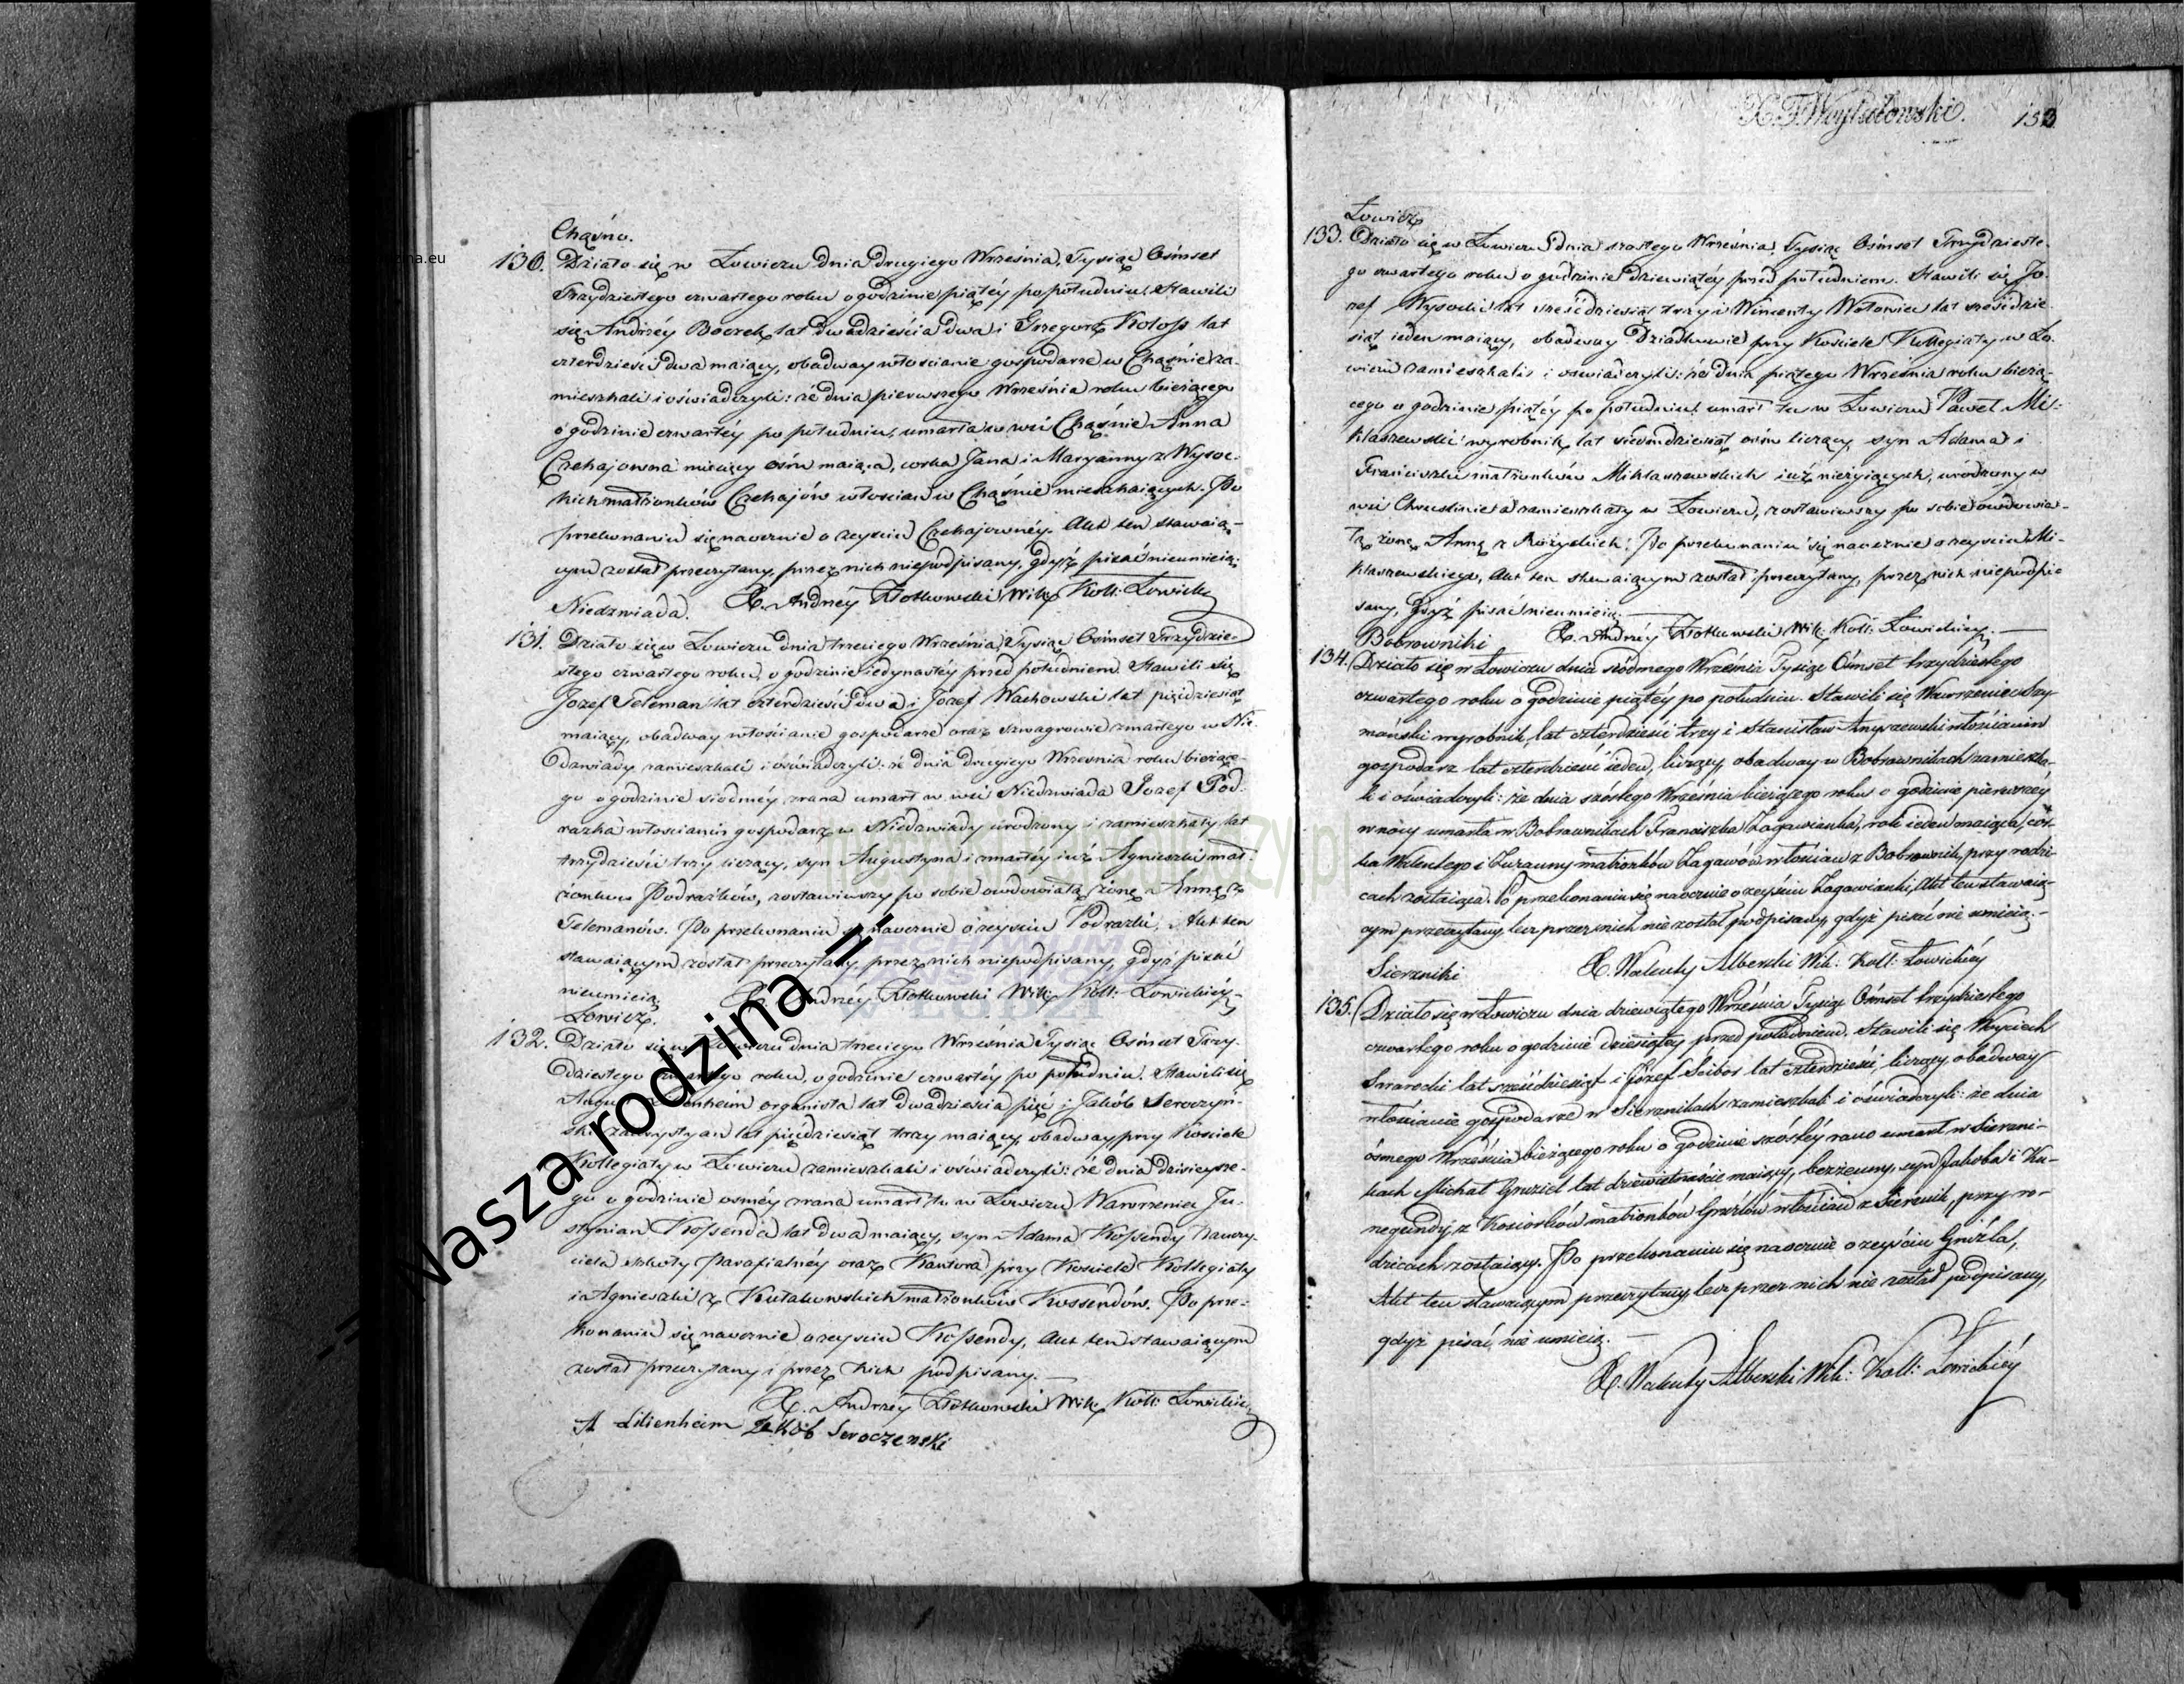 Chąśno.
130. Działo się w Łowiczu dnia drugiego Września, Tysiąc Ośmset
Trzydziestego czwartego roku o godzinie piątéy po południu, Stawili
się Andrzéy Boczek lat dwadzieścia dwa i Grzegorz Kołoss lat
czterdzieści dwa maiący, obadway włościanie gospodarze w Chąśnie za-
mieszkali i oświadczyli: że dnia pierwszego Września roku bieżącego
o godzinie czwartéy po południu, umarła w wsi Chąśnie Anna
Czekajowna miesięcy ośm maiąca, corka Jana i Maryanny z Wysoc-
kich małżonków Czekajów włościan w Chąśnie mieszkaiących. Po
przekonaniu się naocznie o zeyściu Czekajownéy. Akt ten stawaią-
cym został przeczytany, przez nich niepodpisany, gdyż pisać nieumieią.
Niedzwiada. X. Andrzéy Złotkowski Wik. Koll: Łowicki
131. Działo się w Łowiczu dnia trzeciego Września, Tysiąc Ośmset Trzydzie-
stego czwartego roku, o godzinie iedynastéy przed południem. Stawili się
Jozef Teleman lat czterdzieści dwa i Józef Wachowski lat pięćdziesiąt
maiący, obadway włościanie gospodarze oraz szwagrowie zmarłego w Nie-
dzwiady zamieszkali i oświadczyli: że dnia drugiego Września roku bieżące-
go o godzinie siodméy zrana umarł w wsi Niedzwiada Jozef Pod-
razka włościanin gospodarz w Niedzwiady urodzony i zamieszkały lat
trzydzieści trzy liczący, syn Augustyna i zmarłéy iuż Agnieszki mał-
żonków Podrazków, zostawiwszy po sobie owdowiałą żonę Annę z
Telemanów. Po przekonaniu się naocznie o zeyściu Podrazki, Akt ten
stawaiącym został przeczytany, przez nich niepodpisany, gdyż pisać
nieumieią. X. Andrzéy Złotkowski Wik. Koll: Łowickiéy
Łowicz.
132. Działo się w Łowiczu dnia trzeciego Września Tysiąc Ośmset Trzy-
dziestego czwartego roku, o godzinie czwartéy po południu. Stawili się
August Lilienheim organista lat dwadzieścia pięć i Jakób Seroczyń-
ski zakrystyan lat pięćdziesiąt trzy maiący, obadway przy Kościele
Kollegiaty w Łowiczu zamieszkali i oświadczyli: że dnia dzisieysze-
go o godzinie osméy zrana umarł tu w Łowiczu Wawrzeniec Ju-
stynian Kossenda lat dwa maiący, syn Adama Kossendy Nauczy-
ciela szkoły Parafialnéy oraz Kantora przy Kościele Kollegiaty
i Agnieszki z Kutakowskich małżonków Kossendów. Po prze-
konaniu się naocznie o zeyściu Kossendy, Akt ten stawaiącym
został przeczytany i przez nich podpisany.
X. Andrzéy Złotkowski Wik. Koll: Łowickiéy
A Lilienheim Jakób Seroczenski
133
Łowicz
133. Działo się w Łowiczu dnia szostego Września, Tysiąc Ośmset Trzydzieste-
go czwartego roku o godzinie dziewiątéy przed południem. Stawili się Jo-
zef Wysocki lat sześćdziesiąt trzy i Wincenty Wołowiec lat sześćdzie-
siąt ieden maiący, obadway Dziadkowie przy Kościele Kollegiaty w Ło-
wiczu zamieszkali i oświadczyli: że dnia piątego Września roku bieżą-
cego o godzinie piątéy po południu umarł tu w Łowiczu Paweł Mi-
klaszewski wyrobnik lat siedmdziesiąt ośm liczący, syn Adama i
Franciszki małżonków Miklaszewskich iuż nieżyiących, urodzony w
wsi Chruslinie a zamieszkały w Łowiczu, zostawiwszy po sobie owdowia-
łą żonę Annę z Różyckich. Po przekonaniu się naocznie o zeyściu Mi-
klaszewskiego, Akt ten stawaiącym został przeczytany, przez nich niepodpi-
sany, gdyż pisać nieumieią.
Bobrowniki X. Andrzéy Złotkowski Wik: Koll: Łowickiéy.
134. Działo się w Łowiczu dnia siódmego Września Tysiąc Ośmset trzydziestego
czwartego roku o godzinie piątéy po południu. Stawili się Wawrzeniec Szy-
mański wyrobnik, lat czterdzieści trzy i Stanisław Anyszewski włościanin
gospodarz lat czterdzieści ieden, liczący, obadway w Bobrownikach zamieszka-
li i oświadczyli: że dnia szóstego Września bieżącego roku o godzinie pierwszéy
w nocy umarła w Bobrownikach Franciszka Zagawianka, rok ieden maiąca, cór-
ka Walentego i Zuzanny małżonków Zagawów włościan z Bobrownik, przy rodzi-
cach zostaiąca. Po przekonaniu się naocznie o zeyściu Zagawianki, Akt ten stawaią-
cym przeczytany, lecz przez nich nie został podpisany, gdyż pisać nie umieią.
Sierzniki X. Walenty Alberski Wik: Koll: Łowickiéy
135. Działo się w Łowiczu dnia dziewiątego Września Tysiąc Ośmset trzydziestego
czwartego roku o godzinie dziesiątéy przed południem. Stawili się Woyciech
Swarocki lat sześćdziesiąt i Józef Scibor lat czterdzieści, liczący, obadway
włościanie gospodarze w Sierznikach zamieszkali i oświadczyli: że dnia
ósmego Września bieżącego roku o godzinie szóstéy rano umarł w Sierzni-
kach Michał Gruziel lat dziewiętnaście maiący, bezżenny, syn Jakóba i Ku-
negundy z Kosiorków małżonków Gruźlów włościan z Sierznik, przy ro-
dzicach zostaiący. Po przekonaniu się naocznie o zeyściu Gruźla,
Akt ten stawaiącym przeczytany, lecz przez nich nie został podpisany,
gdyż pisać nie umieią.
X. Walenty Alberski Wik: Koll: Łowickiéy
=- Nasza rodzina -=
ARCHIWUM
PAŃSTWOWE
W ŁODZI